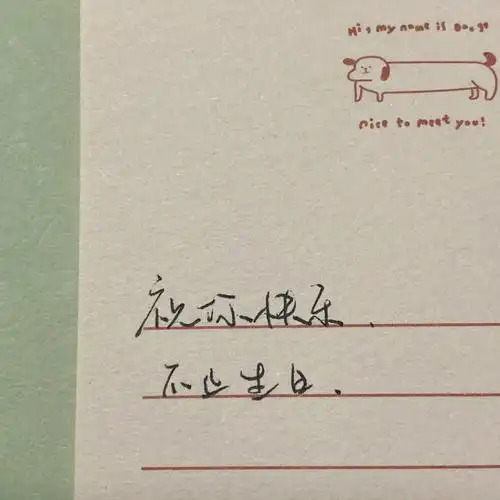 Hi, my name is Doogo
nice to meet you!
祝你快乐.
不止生日.